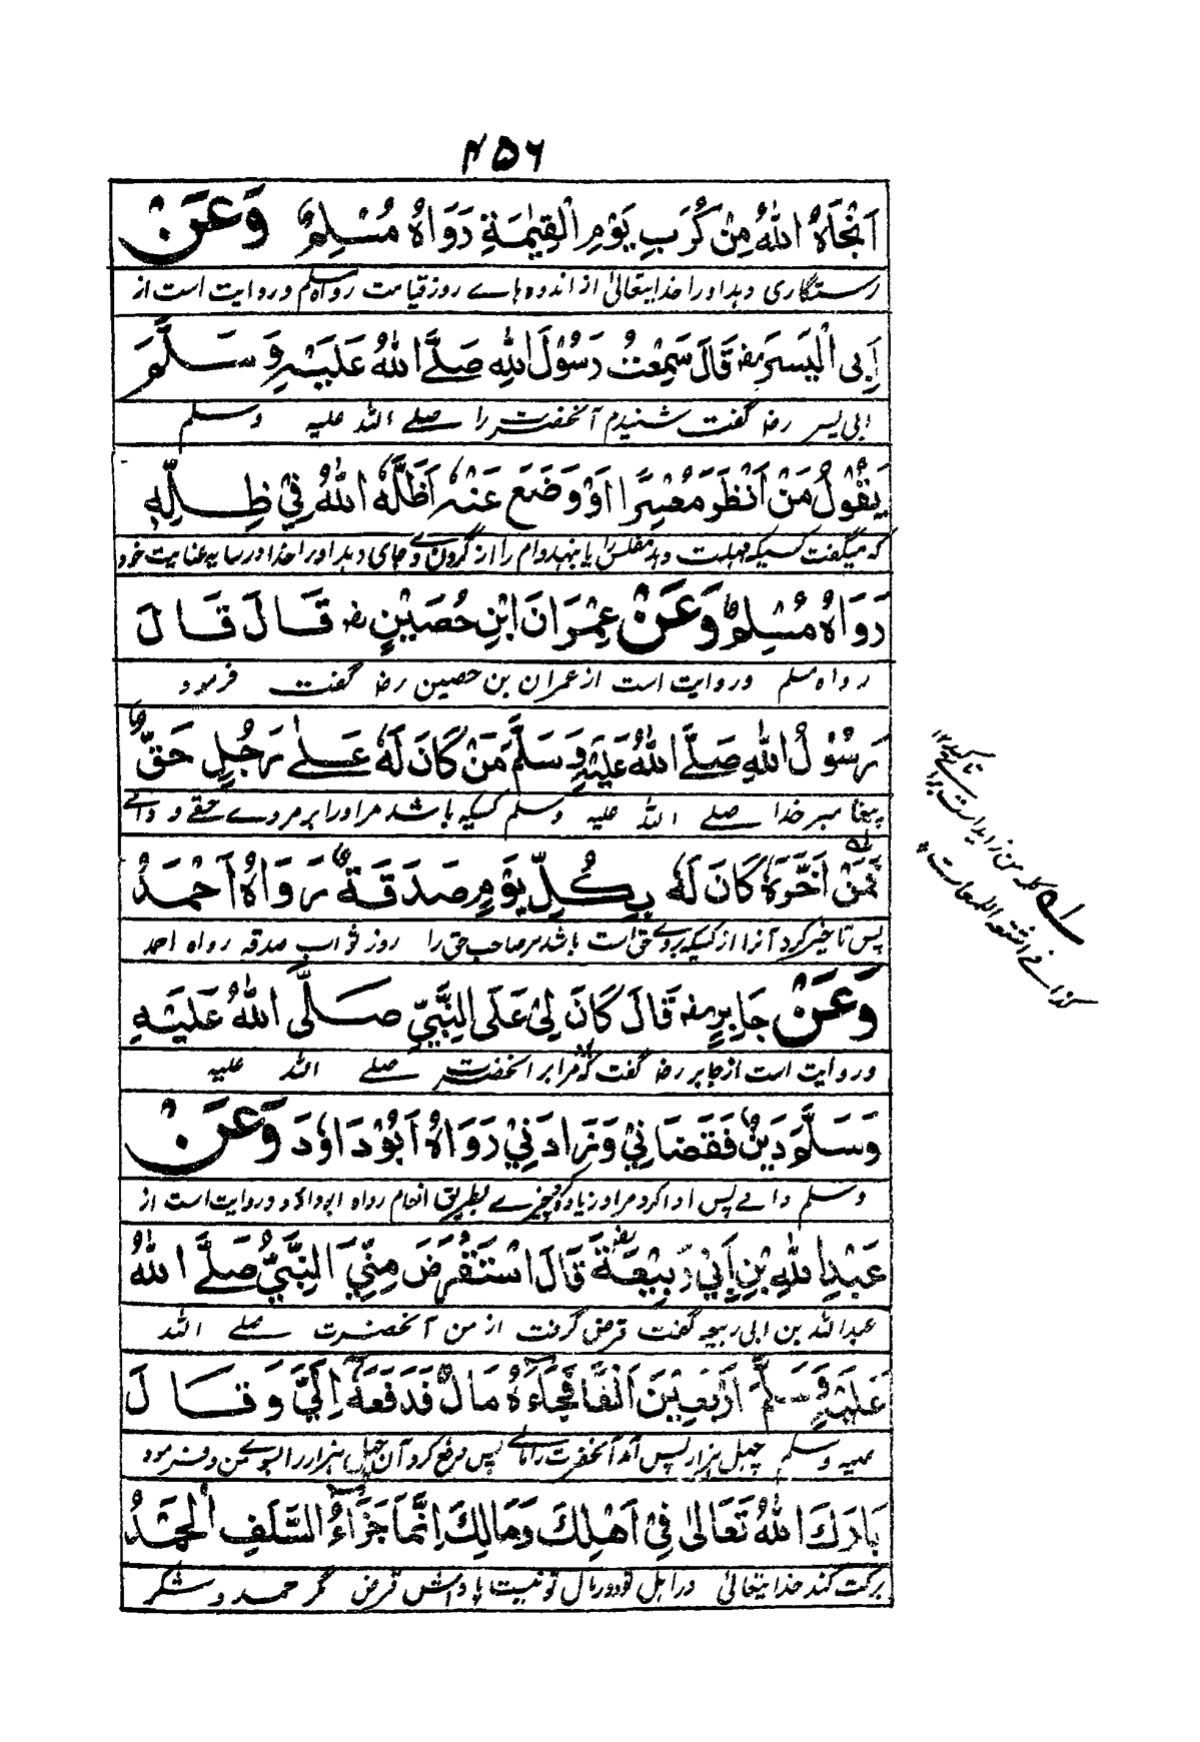 ۴۵۶
اَنْجَاهُ اللهُ مِنْ كُرَبِ يَوْمِ الْقِيٰمَةِ رَوَاهُ مُسْلِمٌ وَعَنْ
رستگاری دہد اورا خدایتعالیٰ از اندوہ ہاے روز قیامت رواہ مسلم و روایت است از
اَبِى الْيَسَرِ رضہ قَالَ سَمِعْتُ رَسُوْلَ اللهِ صَلَّى اللهُ عَلَيْهِ وَسَلَّمَ
ابی یسر رضا گفت شنیدم آنحضرت را صلے اللہ علیہ وسلم
يَقُوْلُ مَنْ اَنْظَرَ مُعْسِرًا اَوْ وَضَعَ عَنْهُ اَظَلَّهُ اللهُ فِيْ ظِلِّهٖ
کہ میگفت کسیکہ مہلت دہد مفلس را یا بنہد وام را از گردن وے جای دہد اورا خدا در سایہ عنایت خود
رَوَاهُ مُسْلِمٌ وَعَنْ عِمْرَانَ ابْنِ حُصَيْنٍ رضہ قَالَ قَالَ
رواہ مسلم و روایت است از عمران بن حصین رضا گفت فرمود
رَسُوْلُ اللهِ صَلَّى اللهُ عَلَيْهِ وَسَلَّمَ مَنْ كَانَ لَهٗ عَلٰى رَجُلٍ حَقٌّ
پیغامبر خدا صلے اللہ علیہ وسلم کسیکہ باشد مر اورا بر مردے حقے و وامے
فَمَنْ اَخَّرَهٗ كَانَ لَهٗ بِكُلِّ يَوْمٍ صَدَقَةٌ رَوَاهُ اَحْمَدُ
پس تاخیر کرد آنرا از کسیکہ بروے حق است باشد مر صاحب حق را روز ثواب صدقہ رواہ احمد
وَعَنْ جَابِرٍ رضہ قَالَ كَانَ لِيْ عَلَى النَّبِيِّ صَلَّى اللهُ عَلَيْهِ
و روایت است از جابر رضا گفت کہ مرا بر آنحضرت صلے اللہ علیہ
وَسَلَّمَ دَيْنٌ فَقَضَانِيْ وَزَادَنِيْ رَوَاهُ اَبُوْ دَاوٗدَ وَعَنْ
وسلم وامے پس ادا کرد مرا و زیادہ چیزے بطریق انعام رواہ ابوداؤد و روایت است از
عَبْدِ اللهِ بْنِ اَبِيْ رَبِيْعَةَ رضہ قَالَ اسْتَقْرَضَ مِنِّيْ النَّبِيُّ صَلَّى اللهُ
عبداللہ بن ابی ربیعہ گفت قرض گرفت از من آنحضرت صلے اللہ
عَلَيْهِ وَسَلَّمَ اَرْبَعِيْنَ اَلْفًا فَجَاءَهٗ مَالٌ فَدَفَعَهٗ اِلَيَّ وَقَالَ
علیہ وسلم چہل ہزار پس آمد آنحضرت را مالے پس دفع کرد آن چہل ہزار را بسوے من و فرمود
بَارَكَ اللهُ تَعَالٰى فِيْ اَهْلِكَ وَمَالِكَ اِنَّمَا جَزَاءُ السَّلَفِ الْحَمْدُ
برکت کند خدایتعالیٰ در اہل تو و در مال تو نیست پاداش قرض مگر حمد و شکر
کلمہ من زاید است براے تاکید ۱۲
کذا فی اشعۃ اللمعات